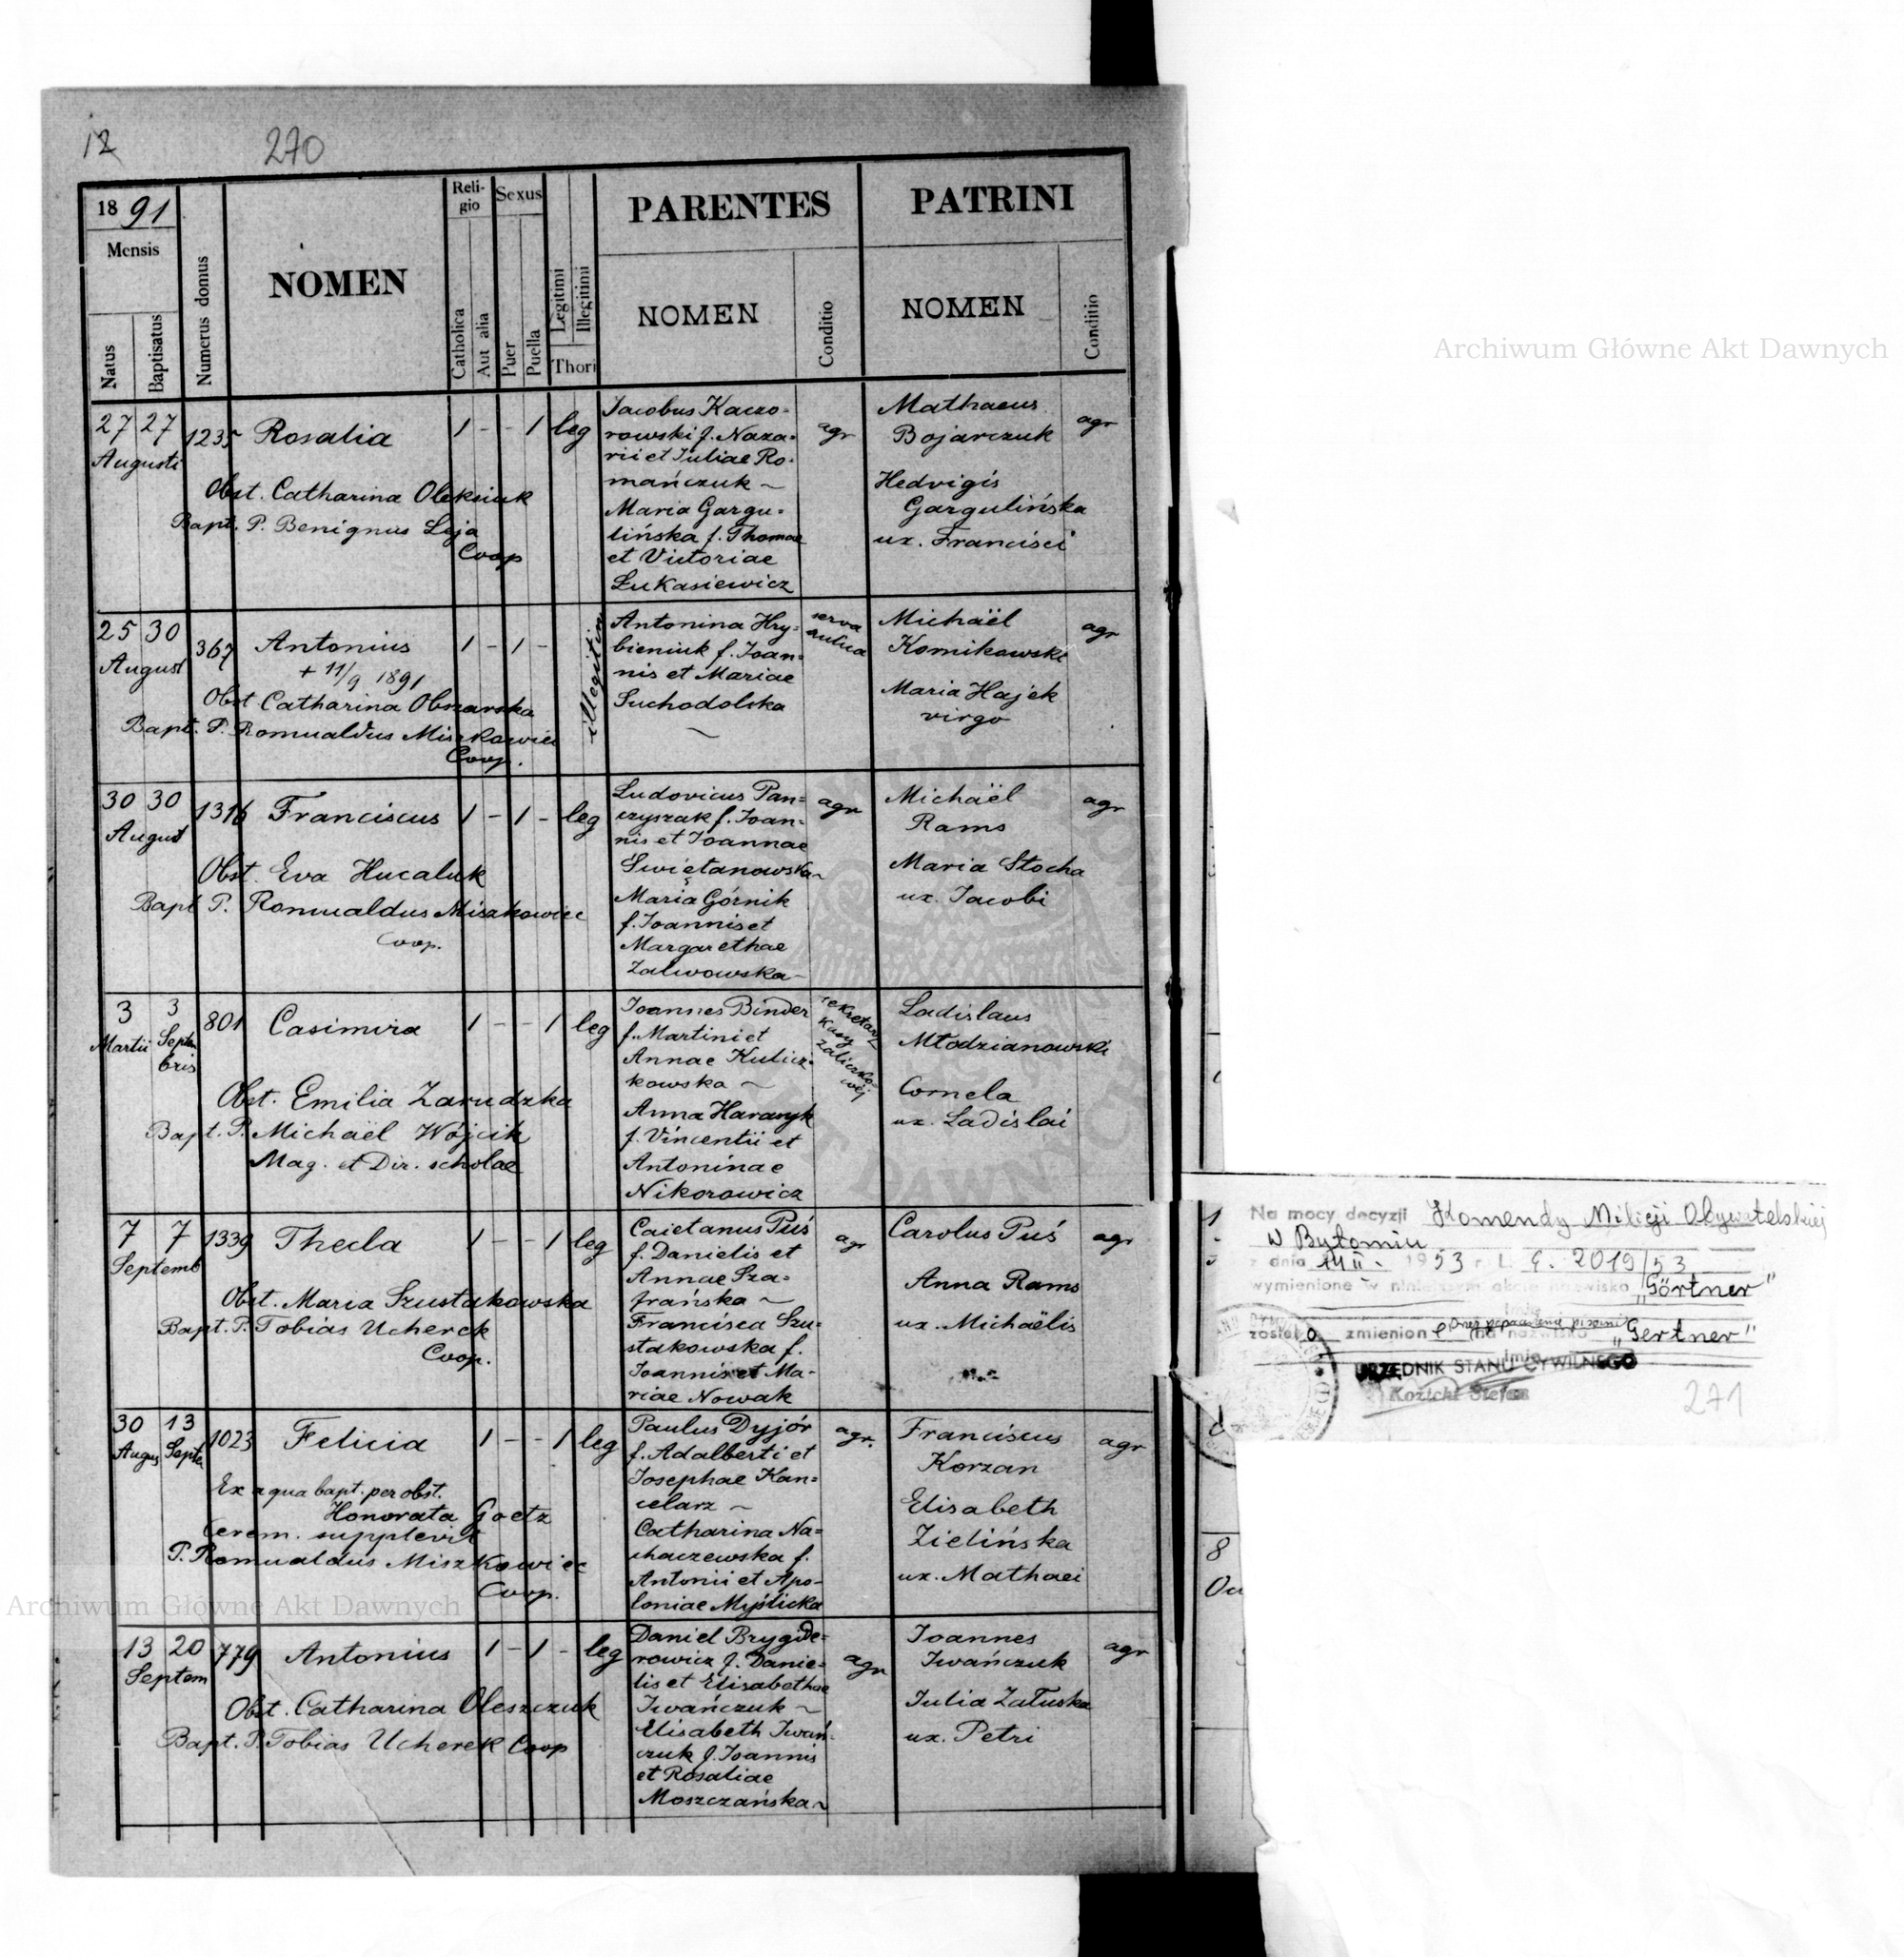 12
270
18 91
Mensis
Natus
Baptisatus
Numerus domus
NOMEN
Reli-
gio
Catholica
Aut alia
Sexus
Puer
Puella
Legitimi
Illegitimi
Thori
PARENTES
NOMEN
Conditio
PATRINI
NOMEN
Conditio
27 27
Augusti
1235
Rosalia
1 - - 1 leg
Obst. Catharina Oleksiuk
Bapt. P. Benignus Leja
Coop
Jacobus Kaczo-
rowski f. Naza-
rii et Juliae Ro-
mańczuk ~
Maria Gargu-
lińska f. Thomae
et Victoriae
Łukasiewicz
agr
Mathaeus
Bojarczuk
Hedvigis
Gargulińska
ux. Francisci
agr
25 30
August
367
Antonius
+ 11/9 1891
1 - 1 -
illegitim
Obst Catharina Obszarska
Bapt. P. Romualdus Miszkowiec
Coop.
Antonina Hry=
bieniuk f. Joan=
nis et Mariae
Suchodolska
~
serva
aulica
Michaël
Komikowski
Maria Hajek
virgo
agr
30 30
August
1316
Franciscus
1 - 1 - leg
Obst. Eva Hucaluk
Bapt P. Romualdus Miszkowiec
Coop.
Ludovicus Pan=
czyszak f. Joan=
nis et Joannae
Świętanowska~
Maria Górnik
f. Joannis et
Margarethae
Zalwowska~
agr
Michaël
Rams
Maria Stocha
ux. Jacobi
agr
3 3
Martii Septem
bris
801
Casimira
1 - - 1 leg
Obst. Emilia Zarudzka
Bapt. P. Michaël Wójcik
Mag. et Dir. scholae
Joannes Binder
f. Martini et
Annae Kulicz=
kowska ~
Anna Harasyk
f. Vincentii et
Antoninae
Nikorowicz
sekretarz
Kasy
zaliczko=
wéj
Ladislaus
Młodzianowski
Cornela
ux. Ladislai
7 7
Septemb
1339
Thecla
1 - - 1 leg
Obst. Maria Szustakowska
Bapt. P. Tobias Ucherek
Coop.
Caietanus Puś
f. Danielis et
Annae Sza=
frańska ~
Francisca Szu=
stakowska f.
Joannis et Ma-
riae Nowak
agr
Carolus Puś
Anna Rams
ux. Michaëlis
agr
30 13
Augus Septe
1023
Felicia
1 - - 1 leg
Ex aqua bapt. per obst.
Honorata Goetz
Cerem. supplevit
P. Romualdus Miszkowiec
Coop.
Paulus Dyjór
f. Adalberti et
Josephae Kan=
celarz ~
Catharina Na=
chaczewska f.
Antonii et Apo-
loniae Myślicka
agr.
Franciscus
Korzan
Elisabeth
Zielińska
ux. Mathaei
agr
13 20
Septem
779
Antonius
1 - 1 - leg
Obst. Catharina Oleszczuk
Bapt. P. Tobias Ucherek Coop
Daniel Brygide=
rowicz f. Danie=
lis et Elisabethae
Iwańczuk ~
Elisabeth Iwań=
czuk f. Joannis
et Rosaliae
Moszczańska~
agr
Joannes
Iwańczuk
Julia Załuska
ux. Petri
agr
Archiwum Główne Akt Dawnych
Archiwum Główne Akt Dawnych
Na mocy decyzji Komendy Milicji Obywatelskiej
w Bytomiu
z dnia 1953 r. L. 2019/53
wymienione w niniejszym akcie nazwisko „Görtner"
imię
zostało zmienione na nazwisko „Gertner"
imię
URZĘDNIK STANU CYWILNEGO
Kozicki Stefan
271
8